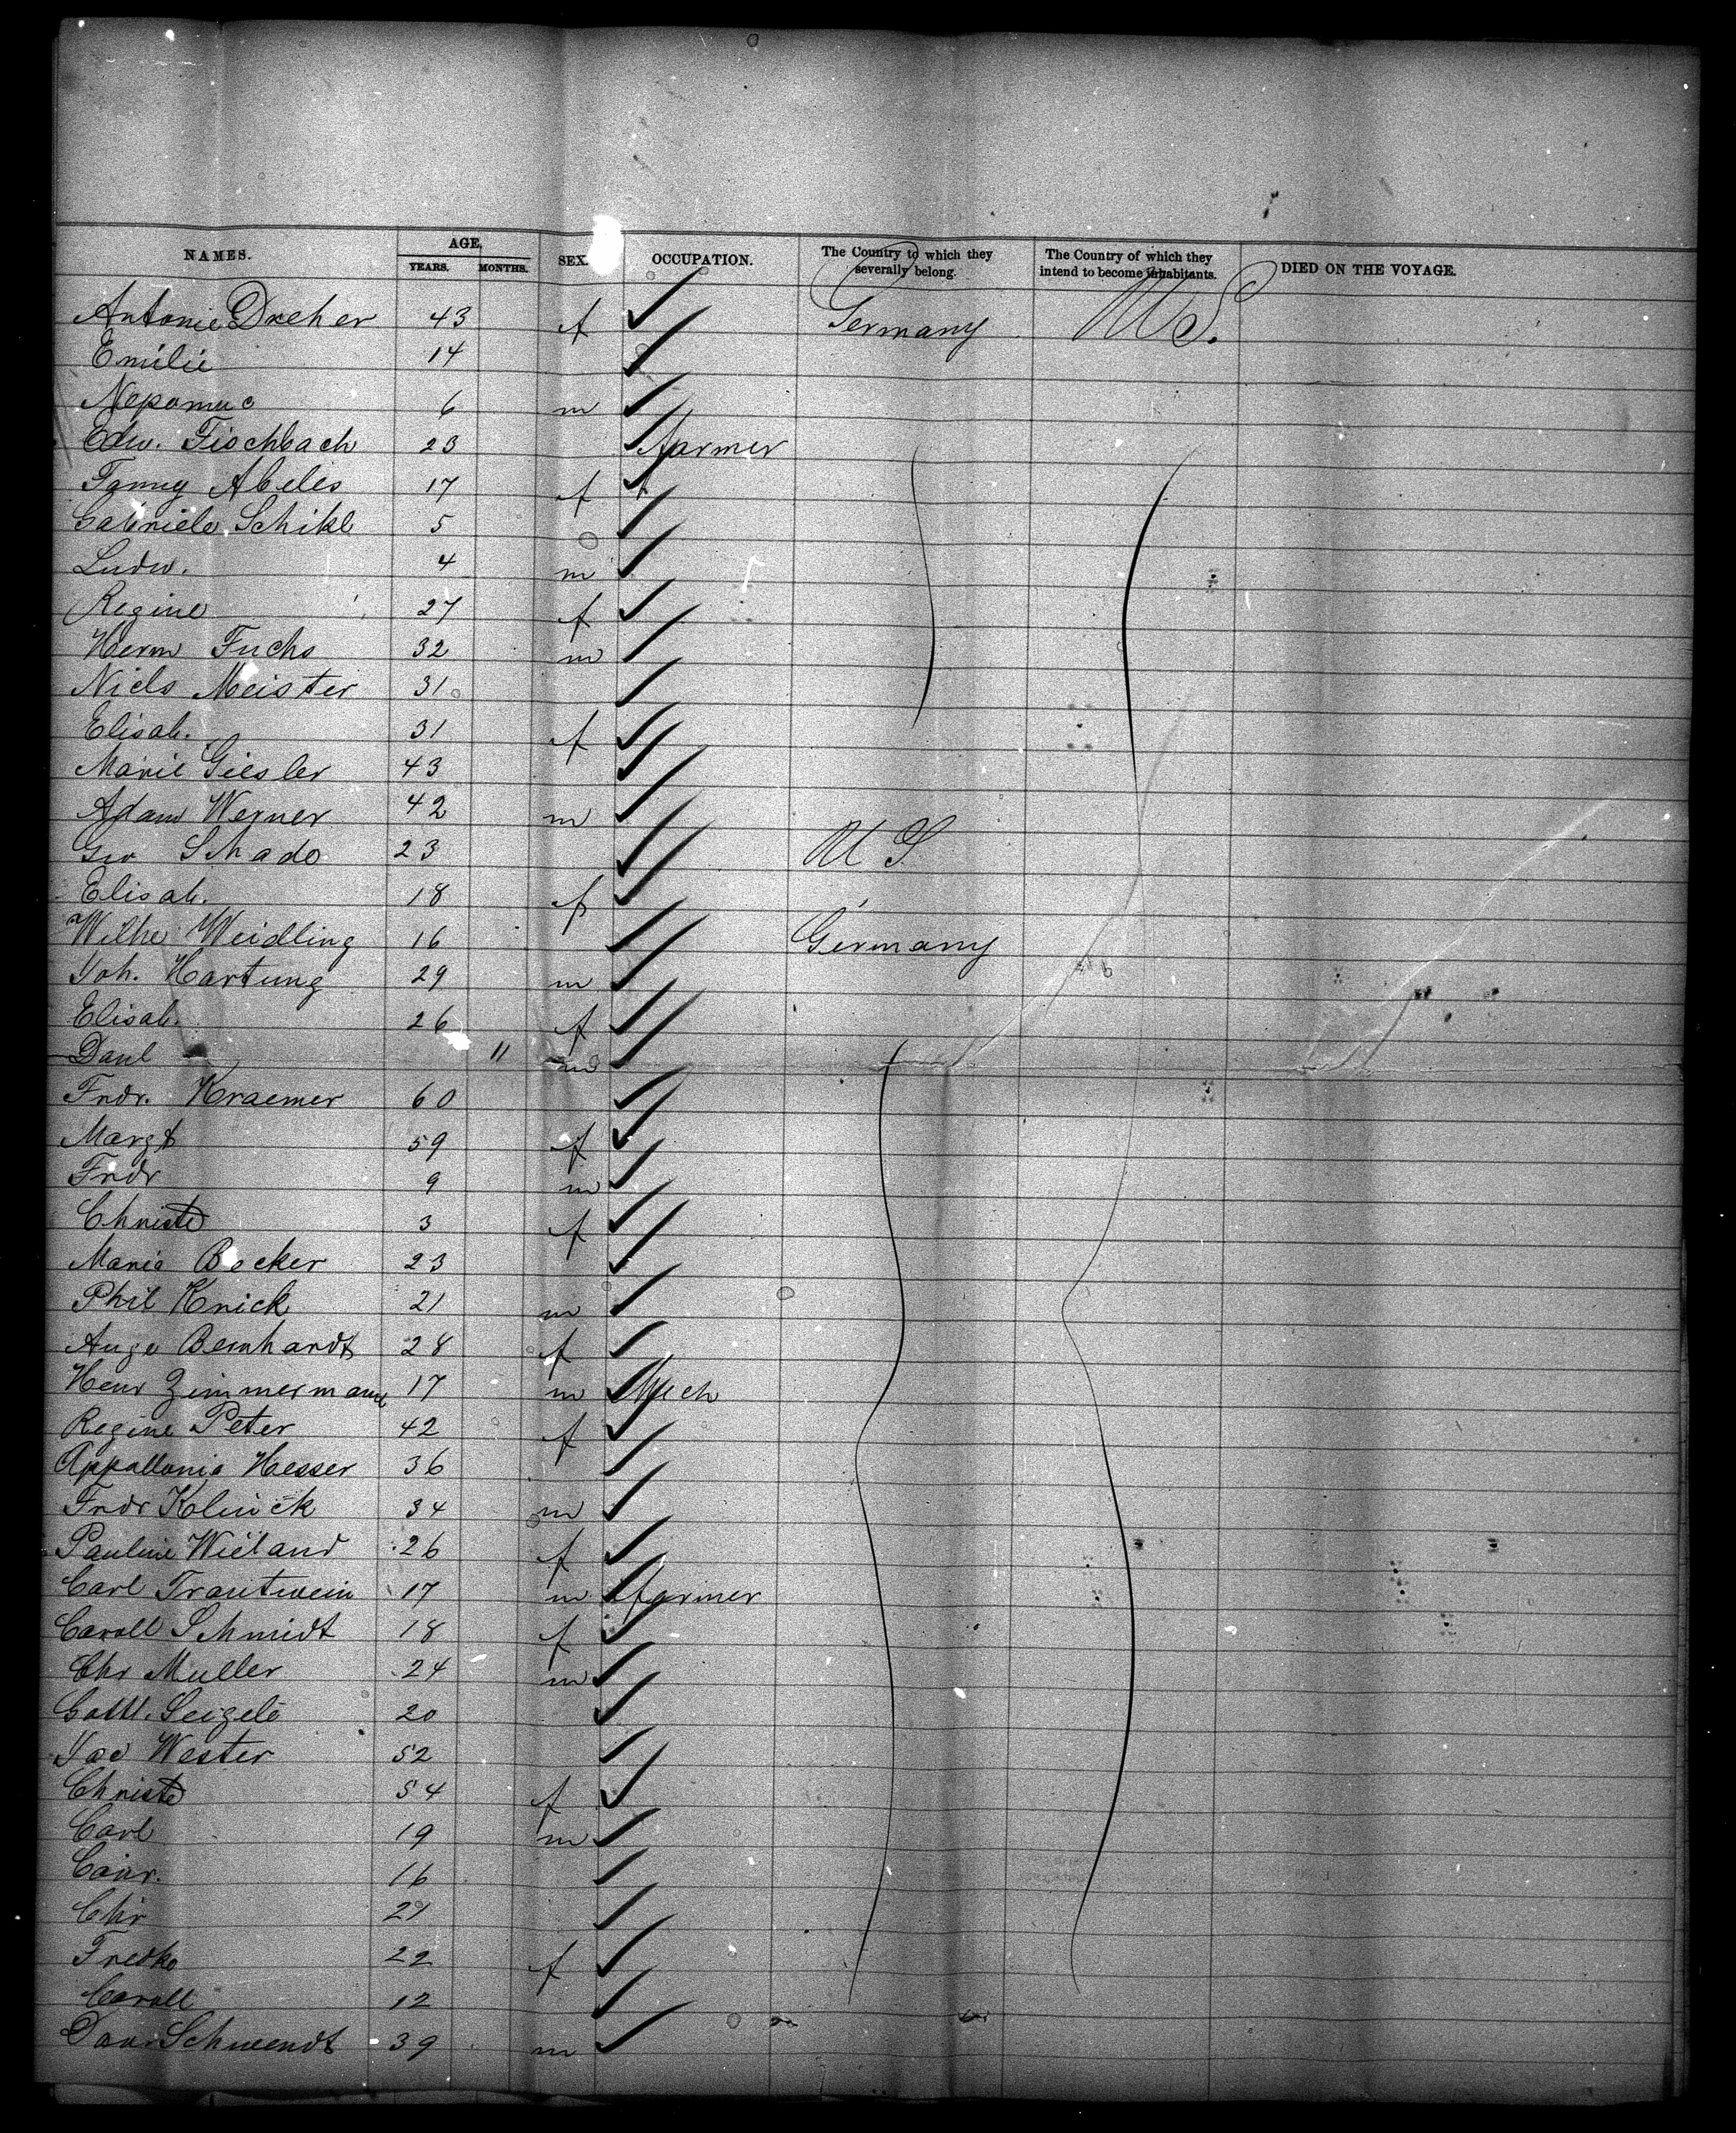 NAMES. AGE, YEARS. MONTHS. SEX. OCCUPATION. The Country to which they severally belong. The Country of which they intend to become inhabitants. DIED ON THE VOYAGE.
Antonie Dreher 43 f Germany U S.
Emilie 14
Nepomuc 6 m
Edw. Fischbach 23 farmer
Fanny Abeles 17 f
Gabriele Schikl 5
Ludw. 4 m
Regine 27 f
Herm Fuchs 32 m
Niels Meister 31
Elisab. 31 f
Marie Giesler 43
Adam Werner 42 m
Geo Schado 23 U S
Elisab. 18 f
Wilhe Weidling 16 Germany
Joh. Hartung 29 m
Elisab. 26 f
Paul 11 m
Fridr. Kraemer 60
Margt 59 f
Fridr 9 m
Christe 3 f
Marie Becker 23
Phil Knick 21 m
Auge Bernhardt 28 f
Henr Zimmermann 17 m Mech
Regine Peter 42 f
Appollonia Hesser 36
Fridr Kolinck 34 m
Pauline Wieland 26 f
Carl Trautwein 17 m farmer
Caroll Schmidt 18 f
Chr Muller 24 m
Gottl. Seizele 20
Jac Wester 52
Christe 54 f
Carl 19 m
Conr. 16
Chr 27
Fredke 22 f
Caroll 12
Schwendt 39 m